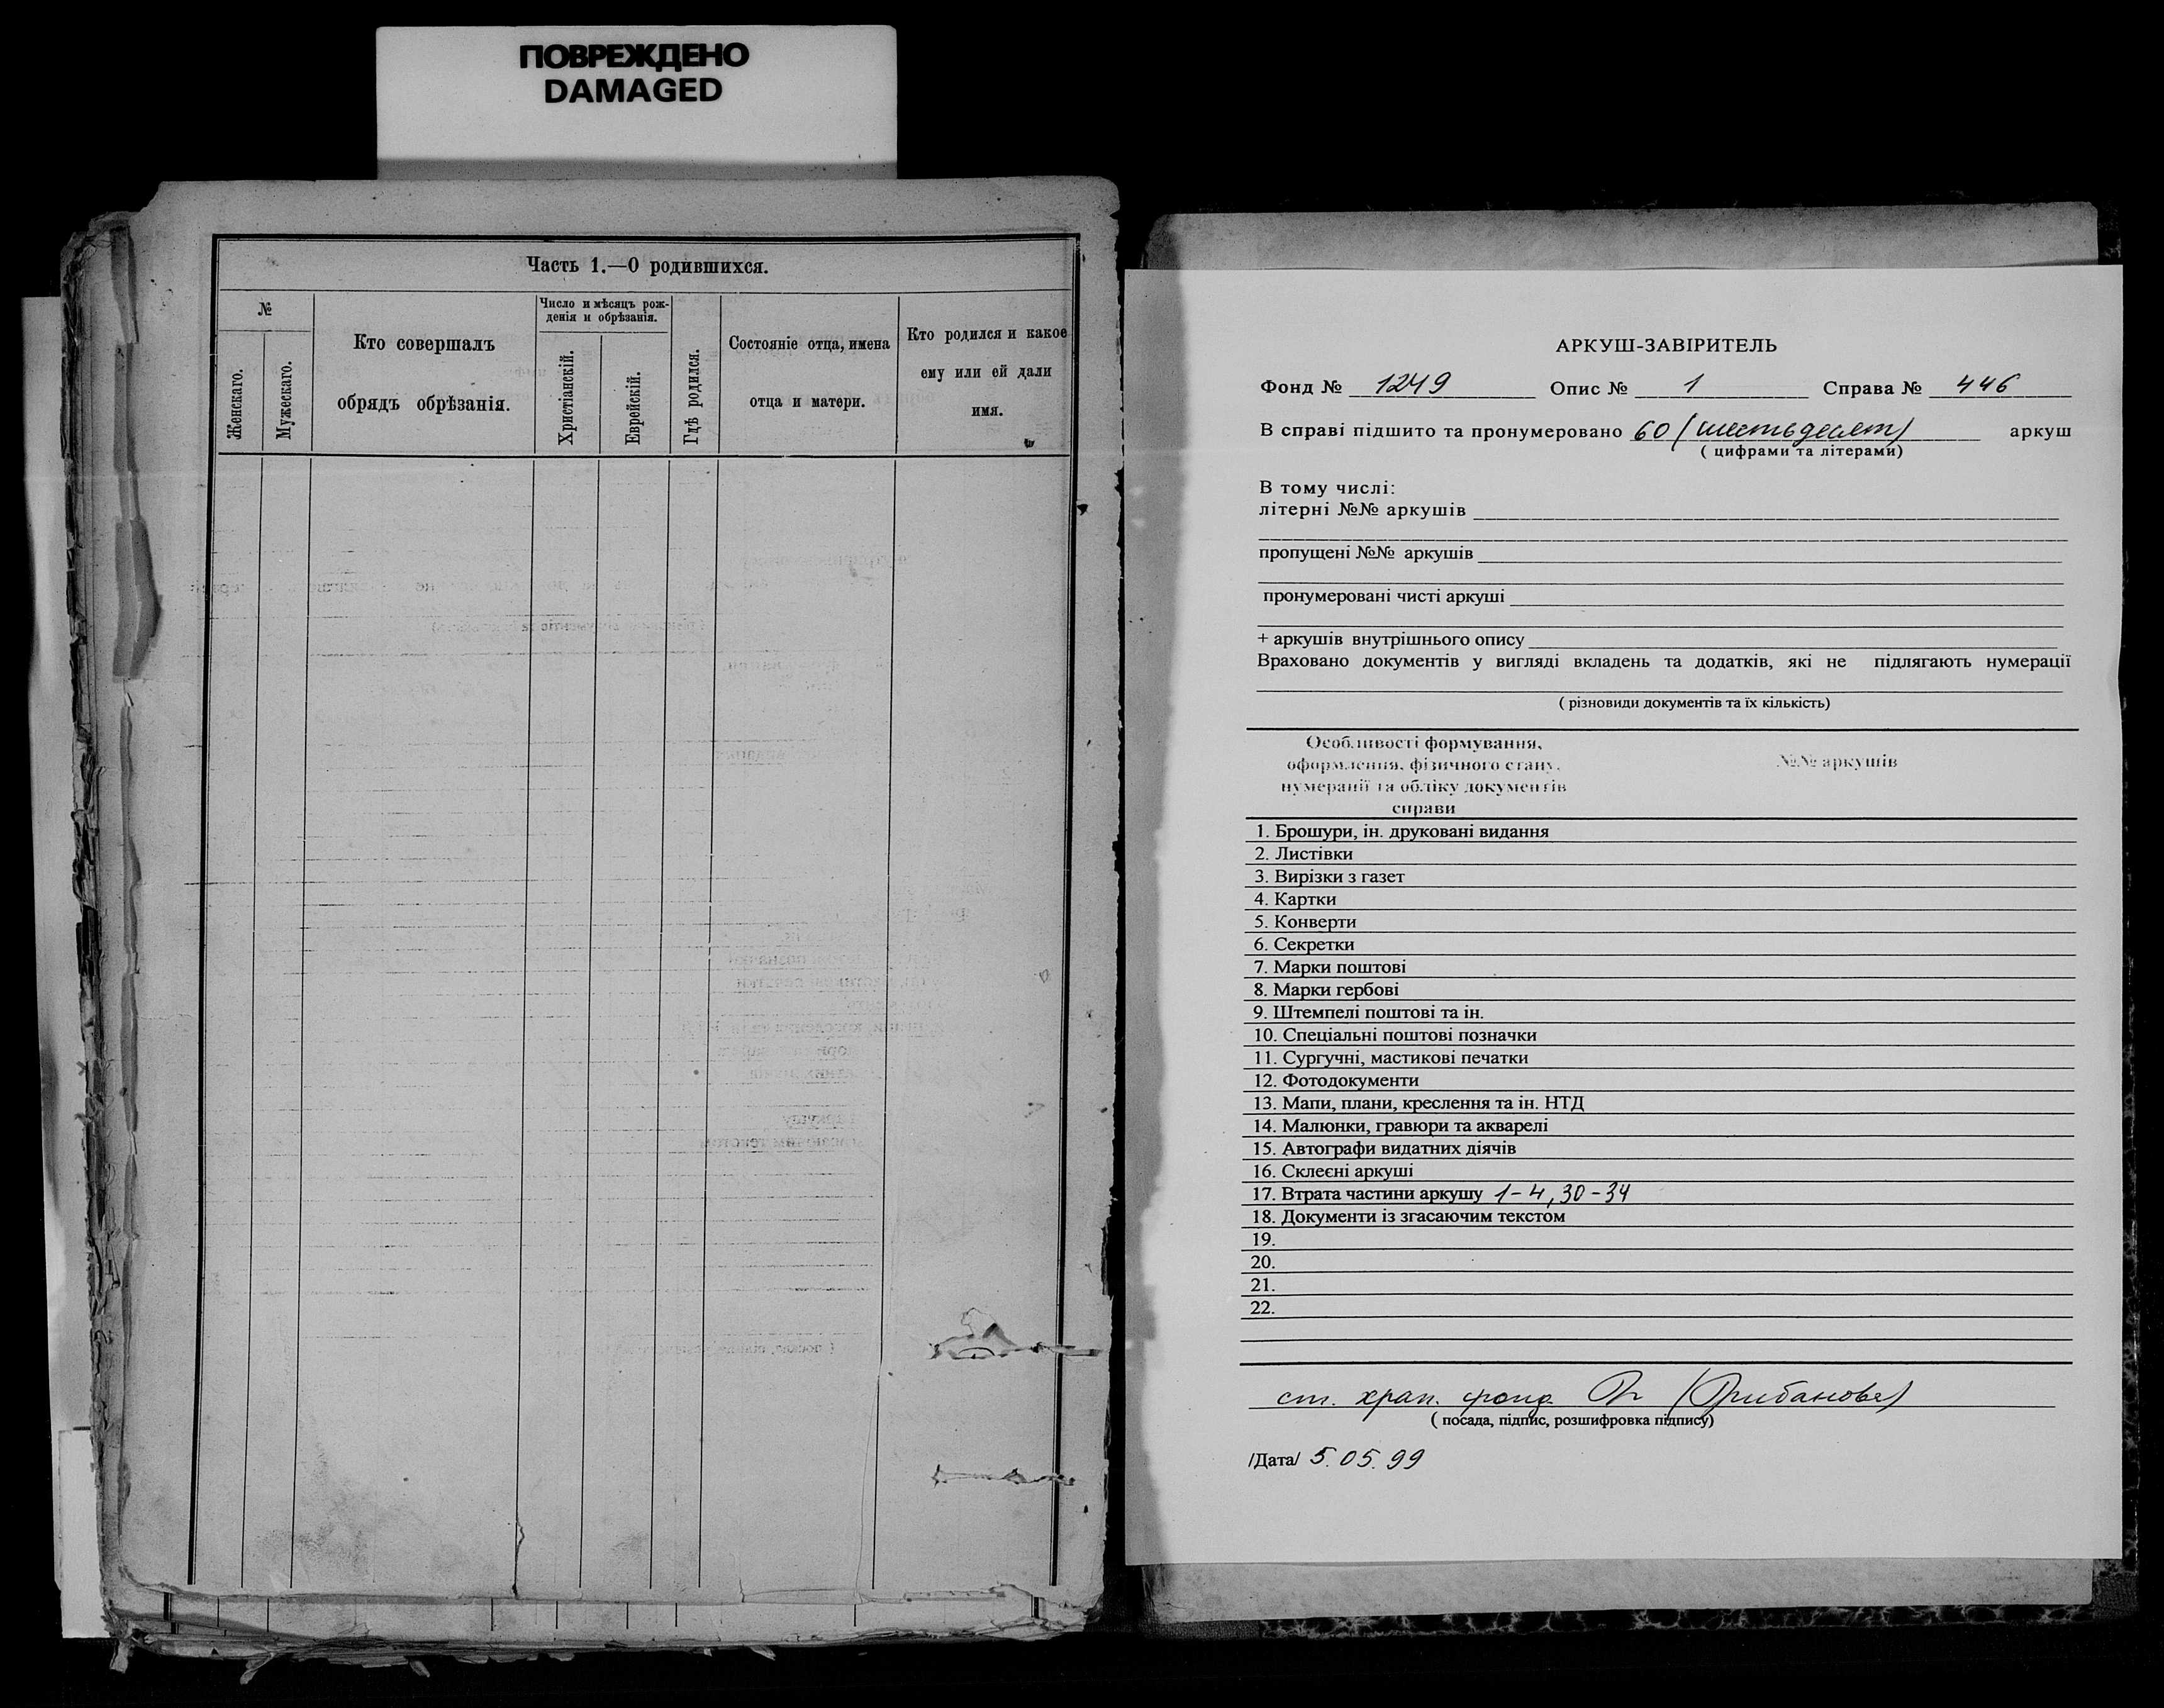 ПОВРЕЖДЕНО
DAMAGED
Часть 1.—О родившихся.
№
Женскаго.
Мужескаго.
Кто совершалъ
обрядъ обрѣзанія.
Число и мѣсяцъ рож-
денія и обрѣзанія.
Христіанскій.
Еврейскій.
Гдѣ родился.
Состояніе отца, имена
отца и матери.
Кто родился и какое
ему или ей дали
имя.
АРКУШ-ЗАВІРИТЕЛЬ
Фонд № 1249 Опис № 1 Справа № 446
В справі підшито та пронумеровано 60 (шестьдесят) аркуш
( цифрами та літерами)
В тому числі:
літерні №№ аркушів
пропущені №№ аркушів
пронумеровані чисті аркуші
+ аркушів внутрішнього опису
Враховано документів у вигляді вкладень та додатків, які не підлягають нумерації
( різновиди документів та їх кількість)
Особливості формування,
оформлення, фізичного стану,
нумерації та обліку документів
справи
№№ аркушів
1. Брошури, ін. друковані видання
2. Листівки
3. Вирізки з газет
4. Картки
5. Конверти
6. Секретки
7. Марки поштові
8. Марки гербові
9. Штемпелі поштові та ін.
10. Спеціальні поштові позначки
11. Сургучні, мастикові печатки
12. Фотодокументи
13. Мапи, плани, креслення та ін. НТД
14. Малюнки, гравюри та акварелі
15. Автографи видатних діячів
16. Склеєні аркуші
17. Втрата частини аркушу 1-4, 30-34
18. Документи із згасаючим текстом
19.
20.
21.
22.
ст. хран. фонд.
( посада, підпис, розшифровка підпису)
/Дата/ 5.05.99